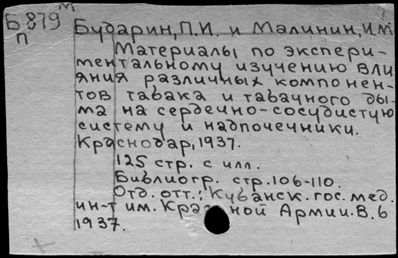 Б 879 м
п
Бударин, П.И. и Малинин, И.М
Материалы по экспери-
ментальному изучению вли
яния различных компонен-
тов табака и табачного ды-
ма на сердечно-сосудистую
систему и надпочечники.
Краснодар, 1937.
125 стр. с илл.
Библиогр. стр. 106-110.
Отд. отт.: Кубанск. гос. мед.
ин-т им. Красной Армии. В. 6
1937.